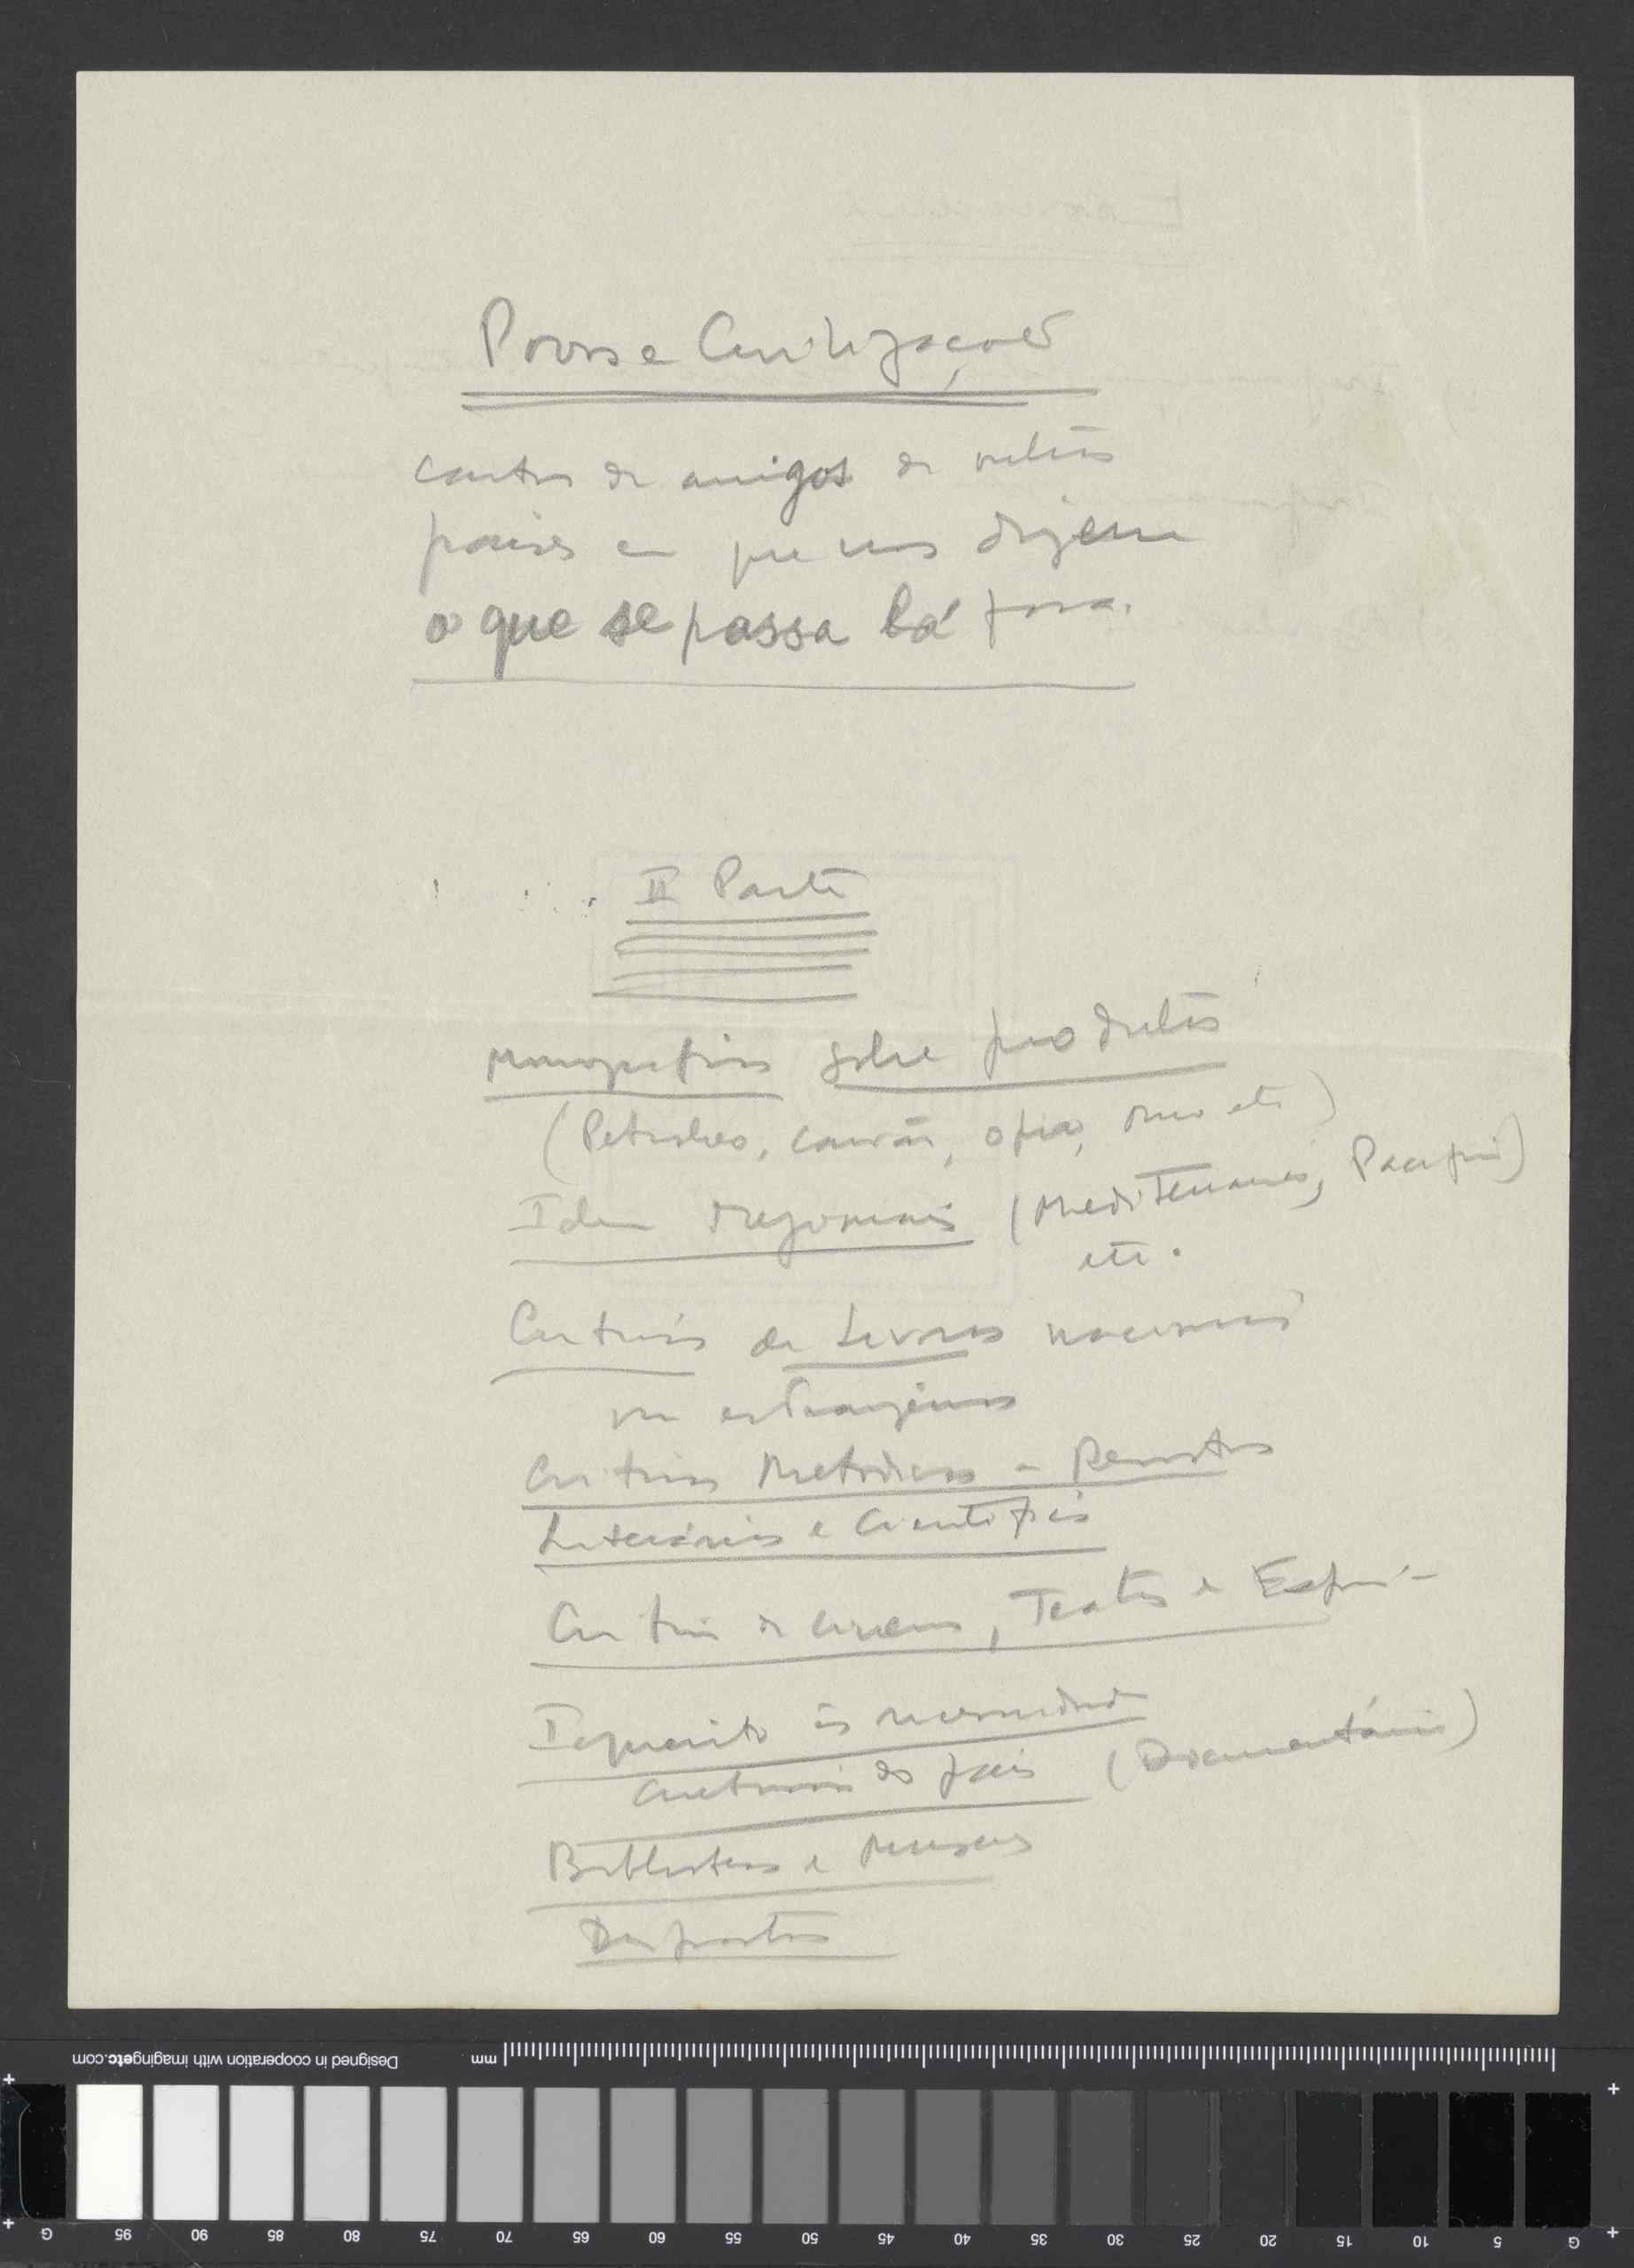 Povos e Civilizações
cartas de amigos de
paises em que nos dizem
o que se passa lá fora.
II Parte
Monografias sobre produtos
(Petroleo, carvão, opio, ouro etc)
Idem regionais (Mediterraneo, Pacifico)
etc.
Criticas de Livros nacionais
ou estrangeiros
Criticas Revistas
Literárias e Cientificas
Critica de cinema, Teatro e
Inquerito ás necessidades
culturais do país (Documentário)
Bibliotecas e Museus
Desportos
Designed in cooperation with imagingetc.com
mm
G 95 90 85 80 75 70 65 60 55 50 45 40 35 30 25 20 15 10 5 G